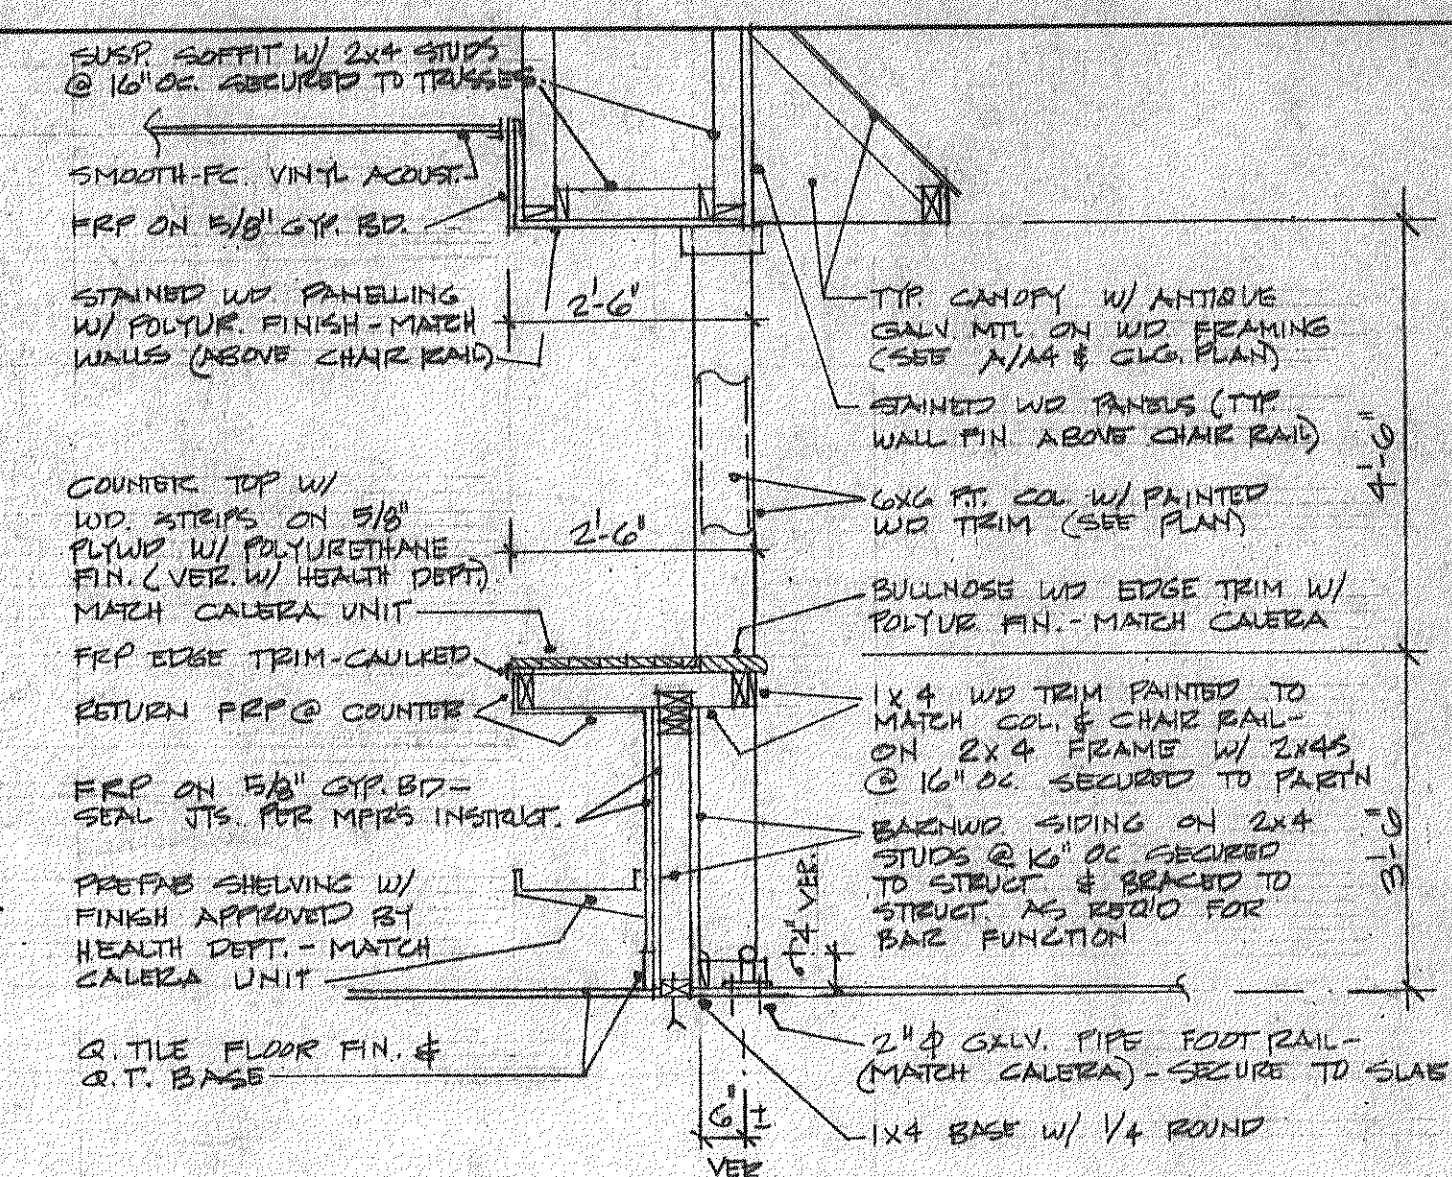 SUSP. SOFFIT W/ 2x4 STUDS
@ 16" OC. SECURED TO TRUSSES
SMOOTH-FC. VINYL ACOUST.
FRP ON 5/8" GYP. BD.
STAINED WD. PANELLING
W/ POLYUR. FINISH - MATCH
WALLS (ABOVE CHAIR RAIL)
2'-6"
COUNTER TOP W/
WD. STRIPS ON 5/8"
PLYWD W/ POLYURETHANE
FIN. (VER. W/ HEALTH DEPT.)
MATCH CALERA UNIT
2'-6"
FRP EDGE TRIM-CAULKED
RETURN FRP @ COUNTER
FRP ON 5/8" GYP. BD-
SEAL JTS. PER MFR'S INSTRUCT.
PREFAB SHELVING W/
FINISH APPROVED BY
HEALTH DEPT. - MATCH
CALERA UNIT
Q. TILE FLOOR FIN. &
Q.T. BASE
TYP. CANOPY W/ ANTIQUE
GALV MTL. ON WD FRAMING
(SEE A/A4 & CLG. PLAN)
STAINED WD PANELS (TYP.
WALL FIN. ABOVE CHAIR RAIL)
6X6 P.T. COL W/ PAINTED
WD TRIM (SEE PLAN)
4'-6"
BULLNOSE WD EDGE TRIM W/
POLYUR FIN. - MATCH CALERA
1X4 WD TRIM PAINTED TO
MATCH COL. & CHAIR RAIL-
ON 2X4 FRAME W/ 2X4S
@ 16" OC. SECURED TO PART'N
BARNWD. SIDING ON 2x4
STUDS @ 16" OC SECURED
TO STRUCT. & BRACED TO
STRUCT. AS REQ'D FOR
BAR FUNCTION
3'-6"
4" VER.
2" Φ GALV. PIPE FOOT RAIL-
(MATCH CALERA) - SECURE TO SLAB
1X4 BASE W/ 1/4 ROUND
6" ±
VER